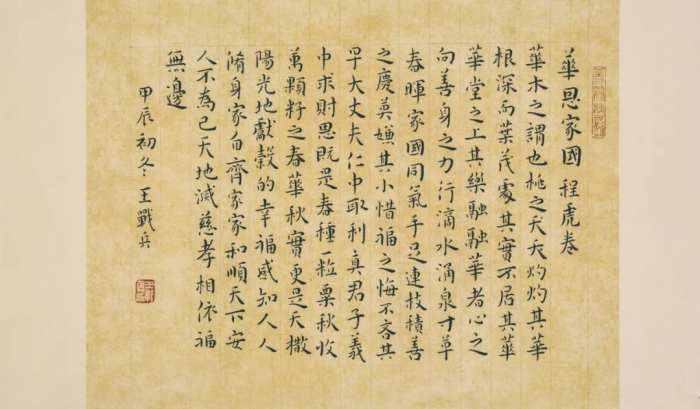 華恩家國 程虎卷
華木之謂也桃之夭夭灼灼其華
根深而葉茂處其實不居其華
華堂之上其樂融融華者心之
向善身之力行滴水涌泉寸草
春暉家國同氣手足連枝積善
之慶莫嫌其小惜福之悔不吝其
早大丈夫仁中取利真君子義
中求財恩既是春種一粒粟秋收
萬顆籽之春華秋實更是天撒
陽光地獻穀的幸福感知人人
脩身家自齊家家和順天下安
人不為己天地滅慈孝相依福
無邊
甲辰初冬王戰兵